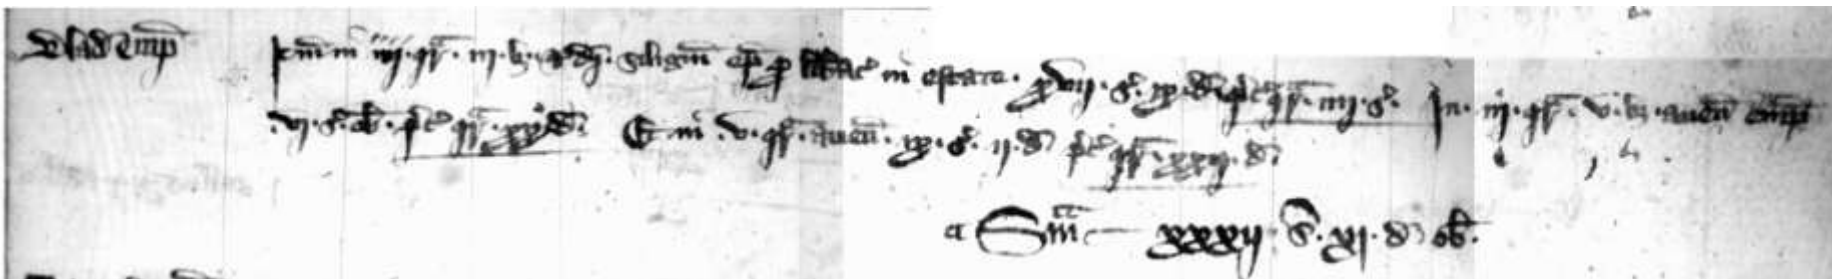 Blad emp̄ Idm̄ in iiij. qr̄. iij. b. & dī. siligin̄ ep̄ p̱ libac̄ in estate. xvij. s̄. ix. d̄. p̄c qr̄. iiij. s̄. In. iij. qr̄. v. b. auen̄ emp̄
.vj. s̄. ob̄. p̄c qr̄. xx. d̄. Et in .v. qr̄. auen̄. ix. s̄. ij. d̄ p̄c qr̄. xxij. d̄.
Sm̄ xxxij. s̄. xj. d̄ ob̄.